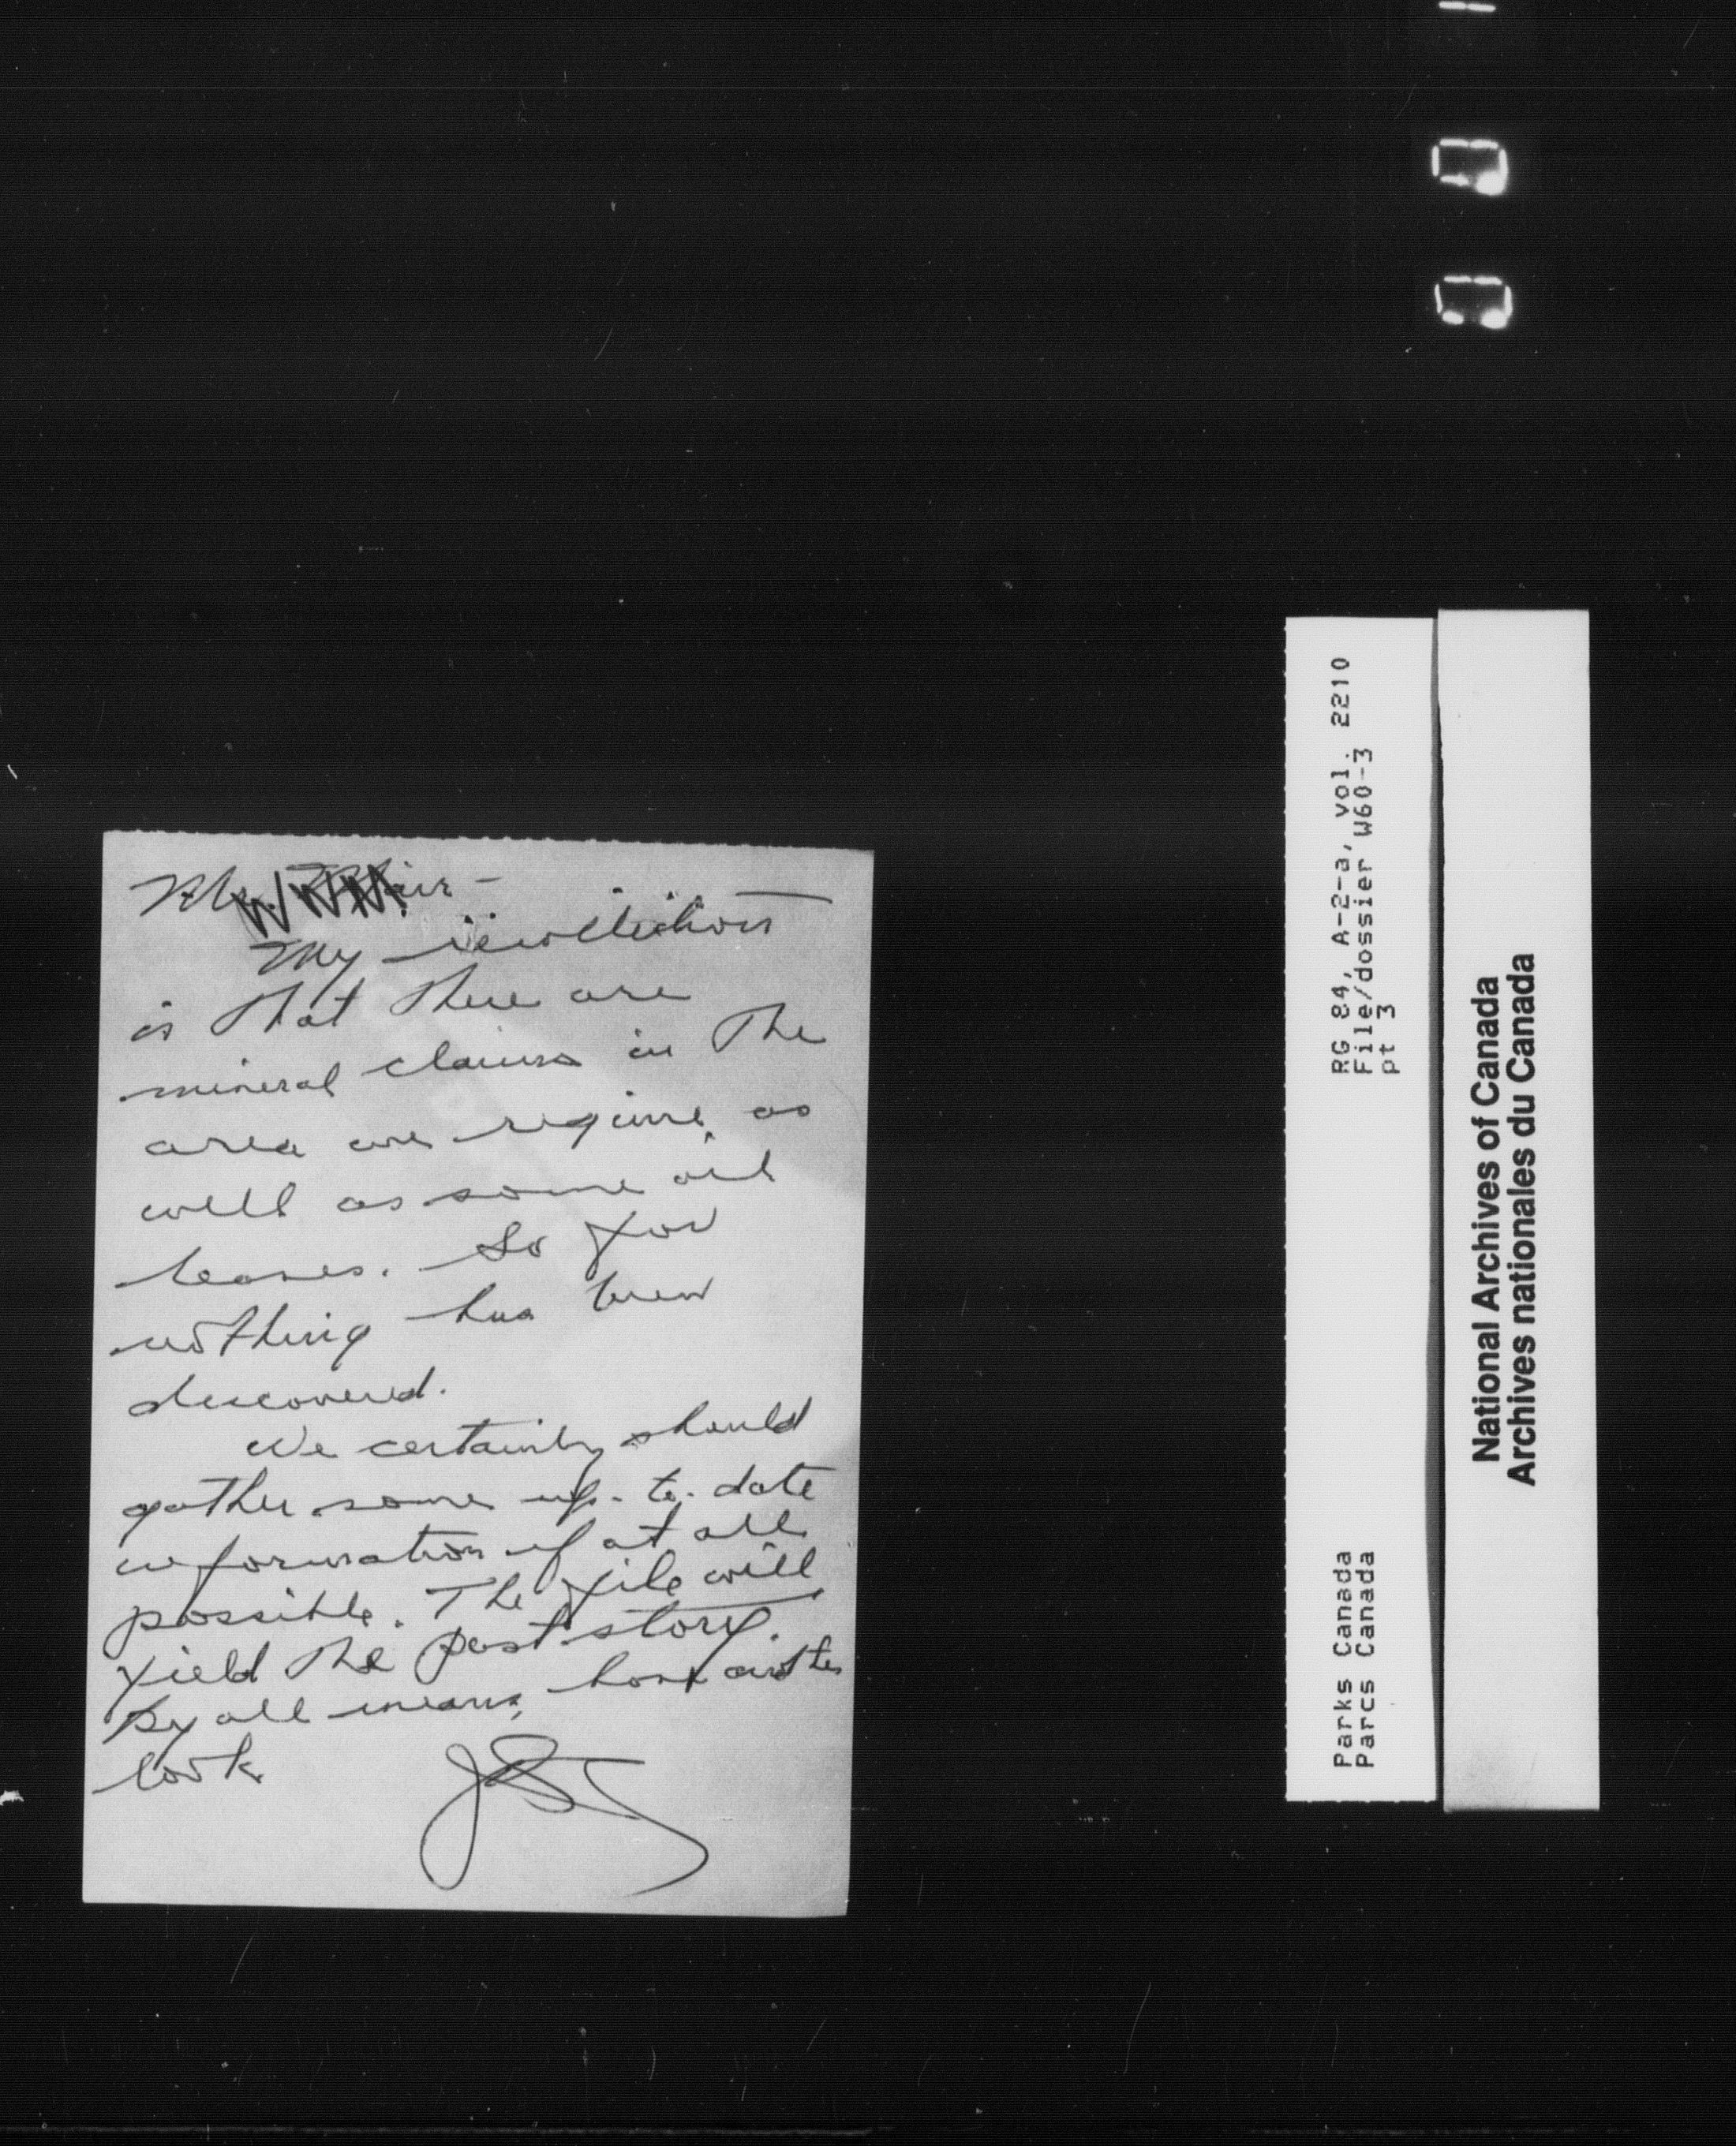 Mr.
My recollection
is that there are
mineral claims in the
area we require, as
well as some oil
leases. So far
nothing has been
discovered.
We certainly should
gather some up-to-date
information if at all
possible. The file will
yield the past story.
By all means, have another
look
RG 84, A-2-a, vol. 2210
File/dossier W60-3
pt 3
Parks Canada
Parcs Canada
National Archives of Canada
Archives nationales du Canada